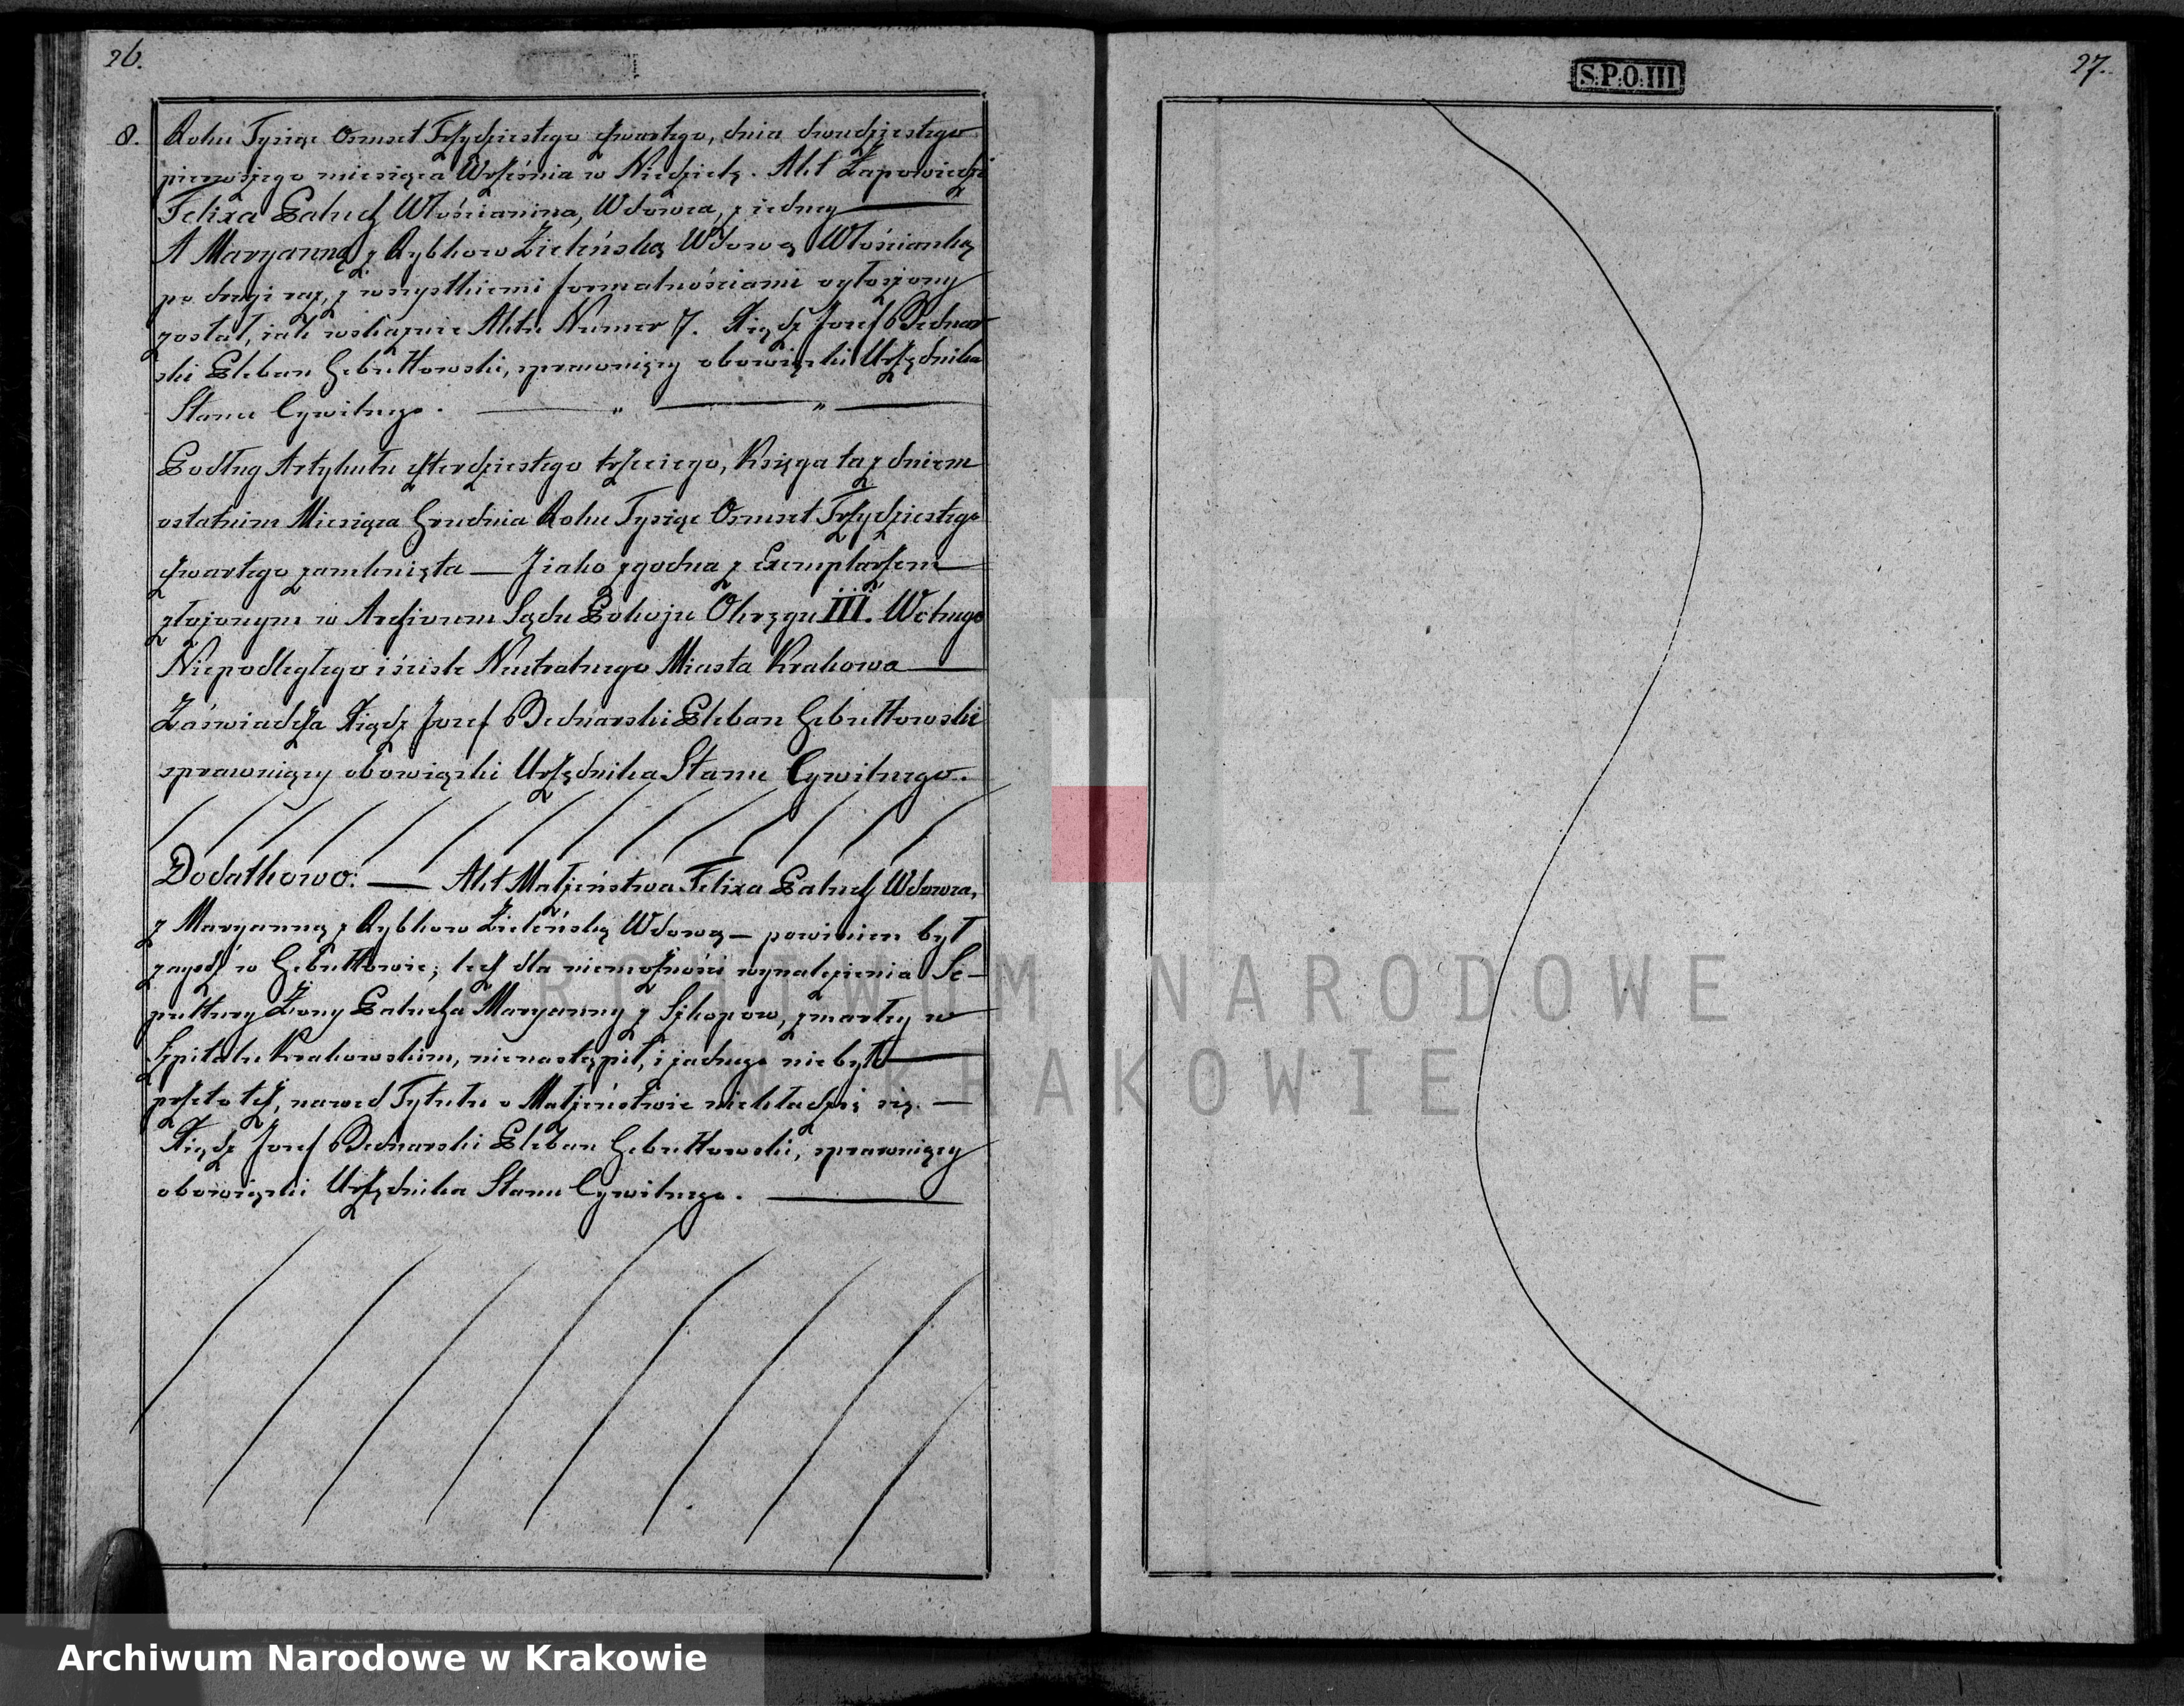 26.
8. Roku Tysiąc Osmset Trzydziestego czwartego, dnia dwudziestego
pierwszego miesiąca Września w Niedzielę. Akt Zapowiedzi
Felixa Paluch Włościanina, Wdowca, z iedney
A Maryanną z Rybkow Zielińską Wdową Włościanką
po drugi raz, z wszystkiemi formalnościami ogłoszony
został, iak wskazuie Aktu Numer 7. Xiądz Jozef Bednar
ski Pleban Gebułtowski, sprawuiący obowiązki Urzędnika
Stanu Cywilnego.
Podług Artykułu czterdziestego trzeciego, Księga ta z dniem
ostatnim Miesiąca Grudnia Roku Tysiąc Osmset Trzydziestego
czwartego zamknięta — J iako zgodna z Exemplarzem
złożonym w Archiwum Sądu Pokoju Okręgu III. Wolnego
Niepodległego i ściśle Neutralnego Miasta Krakowa
Zaświadcza Xiądz Jozef Bednarski Pleban Gebułtowski
sprawuiący obowiązki Urzędnika Stanu Cywilnego.
Dodatkowo: — Akt Małżeństwa Felixa Paluch Wdowca,
z Maryanną z Rybkow Zielińską Wdową — powinien był
zayść w Gebułtowie; lecz dla niemożności wynalezienia Se-
pultury Żony Palucha Maryanny z Szkopow, zmarłey w
Szpitalu Krakowskim, nienastąpił, i żadnego niebyło
przeto też, nawed Tytułu o Małżeństwie niekładzie się. —
Xiądz Jozef Bednarski Pleban Gebułtowski, sprawuiący
obowiązki Urzędnika Stanu Cywilnego.
S.P.O.III
27.
ARCHIWUM NARODOWE
W KRAKOWIE
Archiwum Narodowe w Krakowie